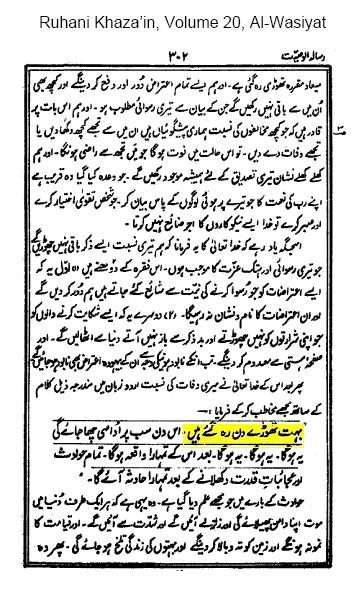 Ruhani Khaza'in, Volume 20, Al-Wasiyat
رسالہ الوصیّت
۳۰۲
میعاد مقررہ تھوڑی رہ گئی ہے۔ اور ہم ایسے تمام اعتراض دُور اور دفع کر دینگے اور کچھ بھی
اُن میں سے باقی نہیں رکھیں گے جن کے بیان سے تیری رسوائی مطلوب ہو۔ اور ہم اس بات پر
قادر ہیں کہ جو کچھ مخالفوں کی نسبت ہماری پیشگوئیاں ہیں اُن میں سے تجھے کچھ دکھا دیں یا
تجھے وفات دے دیں۔ تو اس حالت میں فوت ہوگا جو میں تجھ سے راضی ہونگا۔ اور ہم
کھلے کھلے نشان تیری تصدیق کے لئے ہمیشہ موجود رکھیں گے۔ جو وعدہ کیا گیا وہ قریب ہے
اپنے رب کی نعمت کا جو تیرے پر ہوئی لوگوں کے پاس بیان کر۔ جو شخص تقویٰ اختیار کرے
اور صبر کرے تو خدا ایسے نیکوکاروں کا اجر ضائع نہیں کرتا۔
اسجگہ یاد رہے کہ خدا تعالیٰ کا یہ فرمانا کہ ہم تیری نسبت ایسے ذکر باقی نہیں چھوڑینگے
جو تیری رسوائی اور ہتک عزت کا موجب ہوں۔ اس فقرہ کے دو معنے ہیں (۱) اوّل یہ کہ
ایسے اعتراضات کو جو رُسوا کرنے کی نیّت سے شائع کئے جاتے ہیں ہم دور کر دیں گے
اور ان اعتراضات کا نام و نشان نہ رہیگا۔ (۲) دوسرے یہ کہ ایسے شکایت کرنے والوں کو
جو اپنی شرارتوں کو نہیں چھوڑتے اور بد ذکر سے باز نہیں آتے دنیا سے اٹھالیں گے۔ اور
صفحۂ ہستی سے معدوم کر دینگے۔ تب انکے نابود ہونیکی وجہ سے ان کے بیہودہ اعتراض بھی نابود ہو جائیں گے
پھر بعد اس کے خدا تعالیٰ نے میری وفات کی نسبت اردو زبان میں مندرجہ ذیل کلام
کے ساتھ مجھے مخاطب کر کے فرمایا :۔
بہت تھوڑے دن رہ گئے ہیں۔ اس دن سب پر اُداسی چھا جائے گی
یہ ہوگا۔ یہ ہوگا۔ یہ ہوگا۔ بعد اس کے تمہارا واقعہ ہوگا۔ تمام حوادث
اور عجائبات قدرت دکھلانے کے بعد تمہارا حادثہ آئے گا۔
حوادث کے بارے میں جو مجھے علم دیا گیا ہے۔ وہ یہی ہے کہ ہر ایک طرف دُنیا میں
موت اپنا دامن پھیلائے گی اور زلزلے آئیں گے اور شدّت سے آئیں گے۔ اور قیامت کا
نمونہ ہونگے اور زمین کو تہ و بالا کر دینگے اور بہتوں کی زندگی تلخ ہو جائے گی۔ پھر وہ